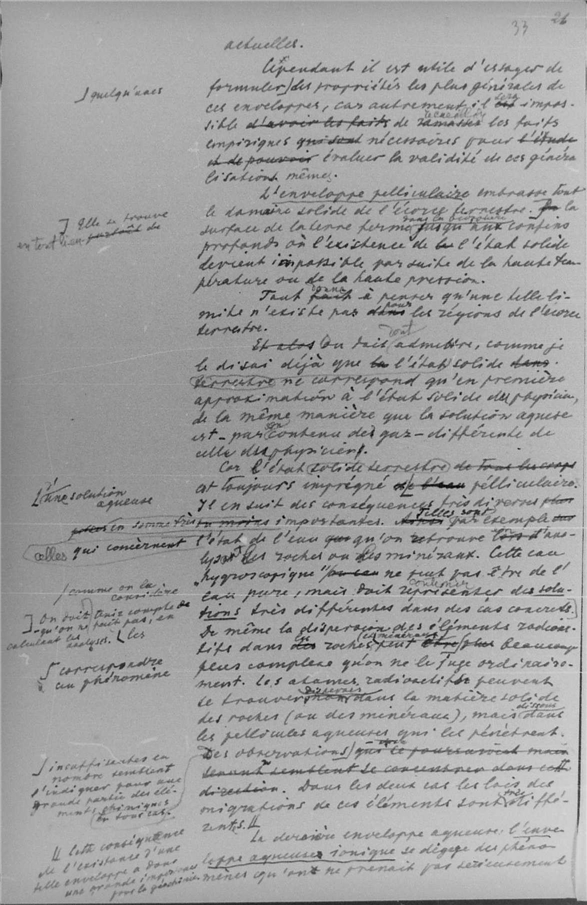 33 26
actuelles.
Cependant il est utile d'essayer de
formuler des propriétés les plus générales de
ces enveloppes, car autrement, il sera impos-
sible d'avoir les faits de recueillir les faits
empiriques qui sont nécessaires pour l'étude
et de pouvoir évaluer la validité de ces généra
lisations mêmes.
L'enveloppe pelliculaire embrasse tout
le domaine solide de l'écorce terrestre.
surface de la terre ferme jusqu'aux confins
profonds où l'existence de l'état solide
devient impossible par suite de la haute tem-
pérature ou de la haute pression.
Tout à penser qu'une telle li-
mite n'existe pas pour les régions de l'écorce
terrestre.
Et alors on doit admettre, comme je
le disai déjà que l'état solide dans
terrestre ne correspond qu'en première
approximation à l'état solide des physiciens,
de la même manière que la solution aqueuse
est - par son contenu des gaz - différente de
celle des physiciens.
Car l'état solide terrestre de tous les corps
est toujours imprégné de l'eau pelliculaire.
Il en suit des conséquences très diverses plus
ou moins importantes. Telles sont par exemple
l'état de l'eau qu'on retrouve lors d'ana-
lyse des roches ou des minéraux. Cette eau
"hygroscopique" ne peut pas être de l'
eau pure, mais doit représenter des solu-
tions très différentes dans des cas concrets.
De même la dispersion des éléments radioac-
tifs dans les roches peut être plus beaucoup
plus complexe qu'on ne le juge ordinaire-
ment. Les atomes radioactifs peuvent
se trouver dispersés dans la matière solide
des roches (ou des minéraux), mais dans
les pellicules aqueuses qui les pénètrent.
Des observations
direction. Dans les deux cas les lois des
migrations de ces éléments sont très diffé-
rents.
La dernière enveloppe aqueuse: l'enve-
loppe aqueuse ionique se dégage des phéno-
mènes qu'on ne prenait pas sérieusement
quelqu'unes
Elle se trouve
partout de
L'une solution
aqueuse
en somme très
celles qui concernent
comme on la
considère
On doit tenir compte de
qu'on ne fait pas, en
calculant les
analyses. les
correspondre
au phénomène
insuffisantes en
nombre semblent
l'indiquer pour une
grande partie des élé-
ments chimiques
en tout cas.
Cette conséquence
de l'existence d'une
telle enveloppe a dans
une grande importance
pour la géochimie